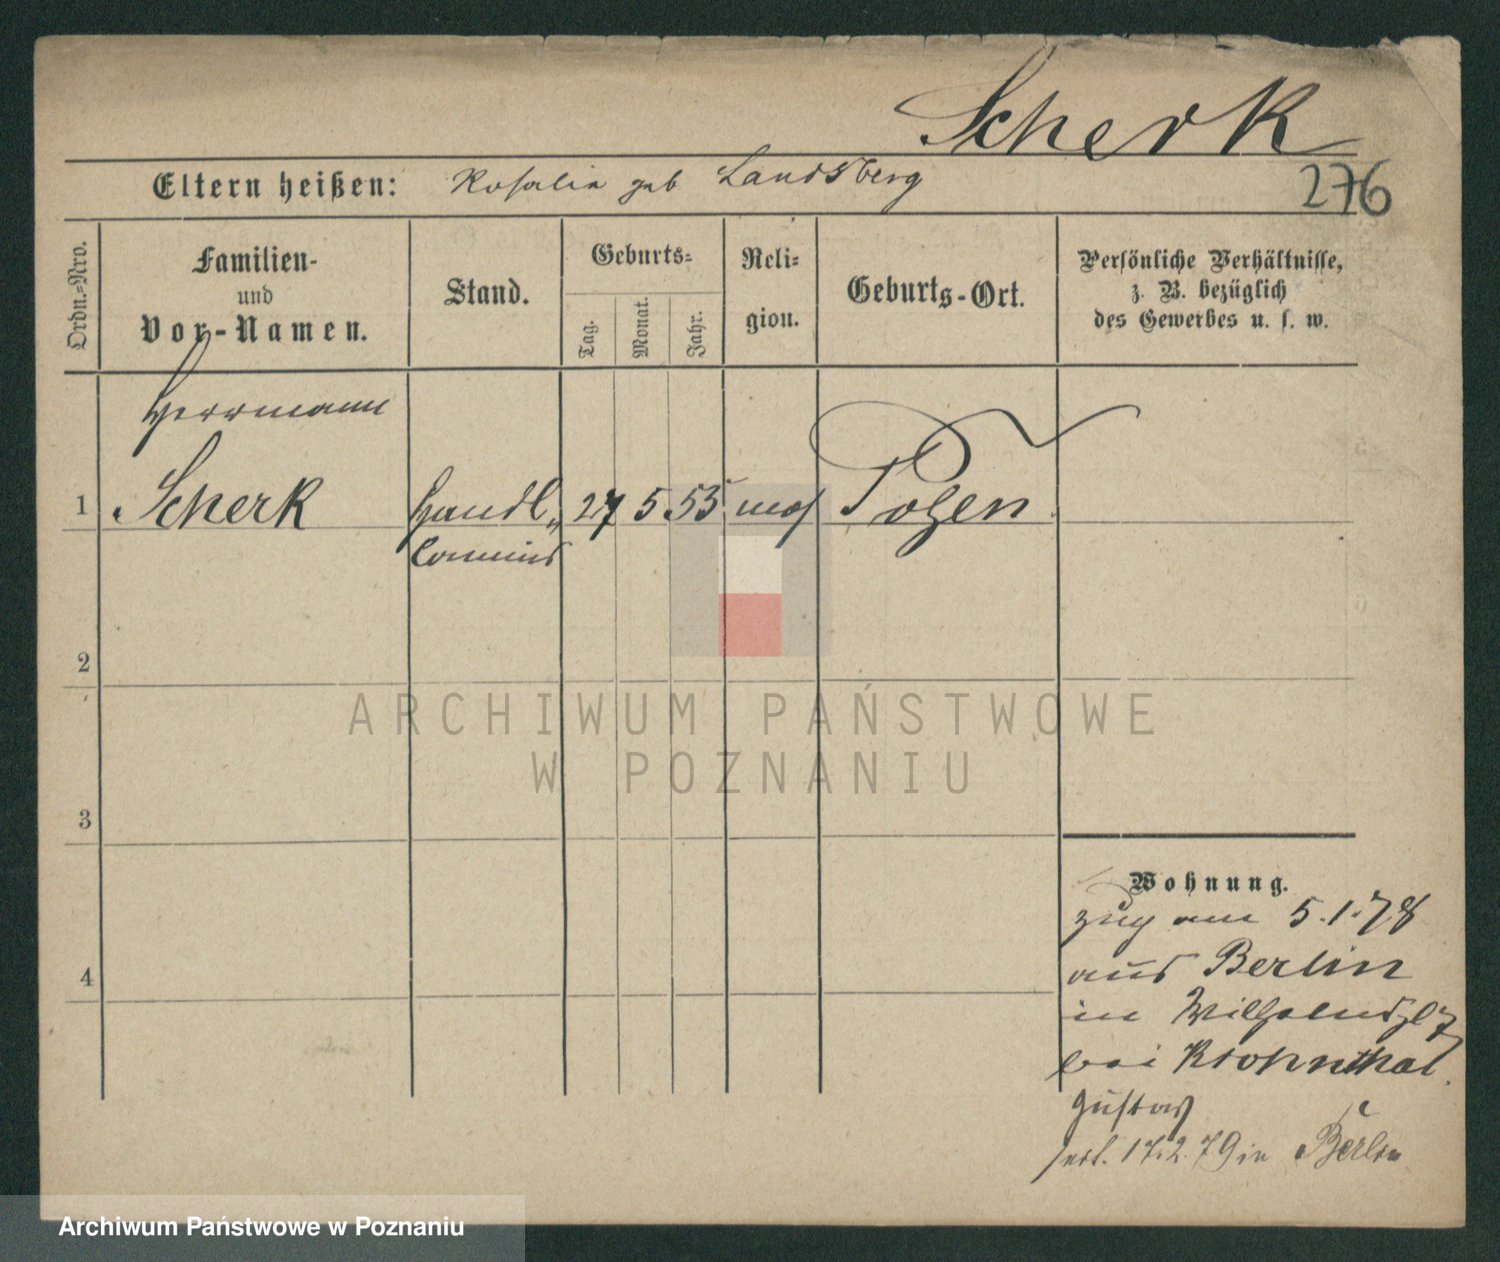 Scherk
276
Eltern heißen: Rosalia geb Landsberg
Ordn.-Nro.
Familien-
und
Vor-Namen.
Stand.
Geburts-
Tag.
Monat.
Jahr.
Reli-
gion.
Geburts-Ort.
Persönliche Verhältnisse,
z. B. bezüglich
des Gewerbes u. s. w.
Herrmann
1 Scherk Handl. 27 5 55 mos Posen
Commis
2
3
4
Wohnung.
Zug am 5.1.78
aus Berlin
in Wilhelmspl 7
bei Kronthal
Gustav
17.2.79 in Berlin
ARCHIWUM PAŃSTWOWE
W POZNANIU
Archiwum Państwowe w Poznaniu